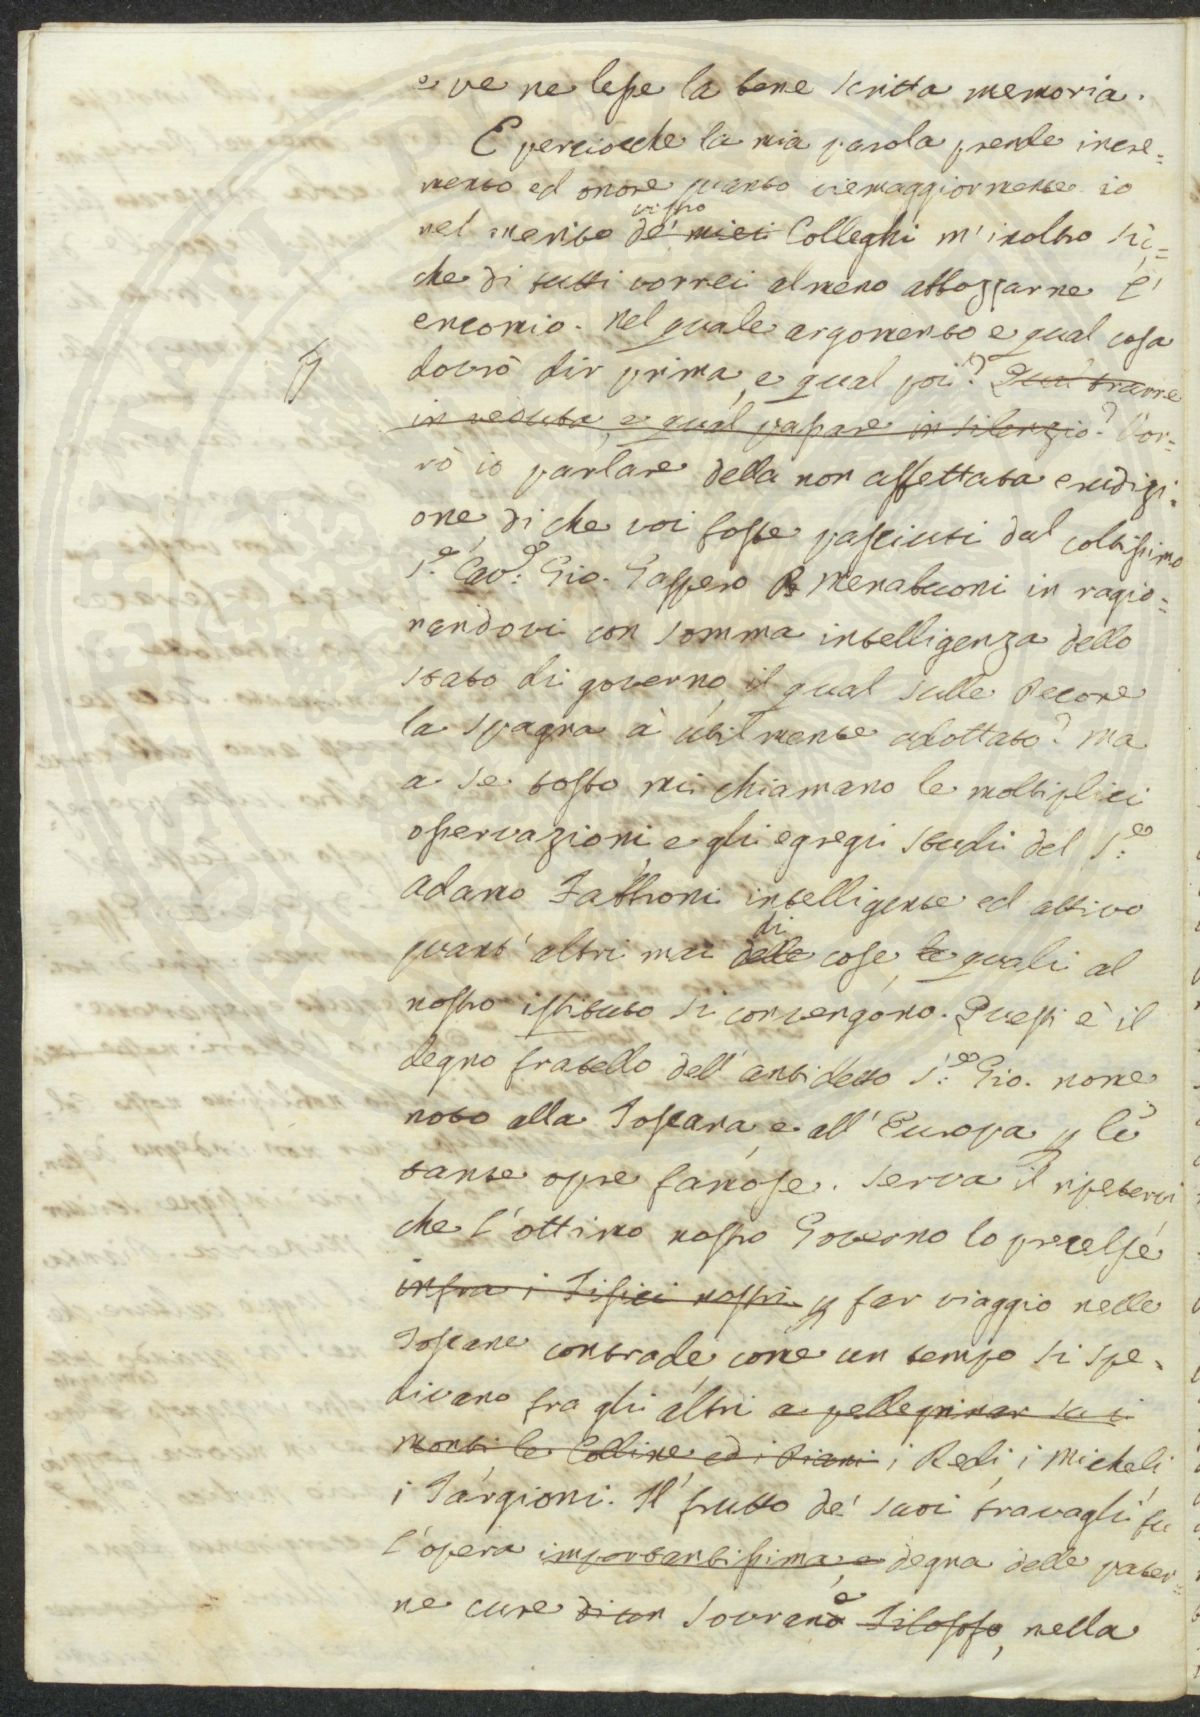 e ve ne lesse la bene scritta memoria.
E perciocche la mia parola prende incre=
mento ed onore quanto viemaggiormente io
vostro
nel merito de' miei Colleghi m'inoltro sic=
che di tutti vorrei almeno abbozzarne l'
encomio. Nel quale argomento e qual cosa
dovrò dir prima, e qual poi? Qual trarre
in veduta, e qual passare in silenzio? Vor=
rò io parlare della non affettata erudizi=
one, di che voi foste pasciuti dal coltissimo
S.e Cav.e Gio. Gasspero Menabuoni in ragio=
nandovi con somma intelligenza dello
stato di governo, il qual sulle Pecore
la Spagna à utilmente adottato? Ma
a se tosto mi chiamano le moltiplici
osservazioni, e gli egregii studii del S.e
Adamo Fabbroni intelligente ed attivo
di
quant' altri mai delle cose le quali al
nostro istituto si convengono. Questi è il
degno fratello dell' antidetto S.e Gio. nome
noto alla Toscana, e all' Europa p le
tante opre famose. Serva il ripetervi
che l'ottimo nostro Governo lo prescelse
infra i Fisici nostri p far viaggio nelle
Toscane contrade, come un tempo si spe=
divano fra gli altri a pellegrinar su i
Monti le Colline ed i Piani i Redi, i Micheli
i Targioni. Il frutto de' suoi travagli fu
l'opera importantissima, e degna delle pater=
e
ne cure di un Sovrano Filosofo, nella